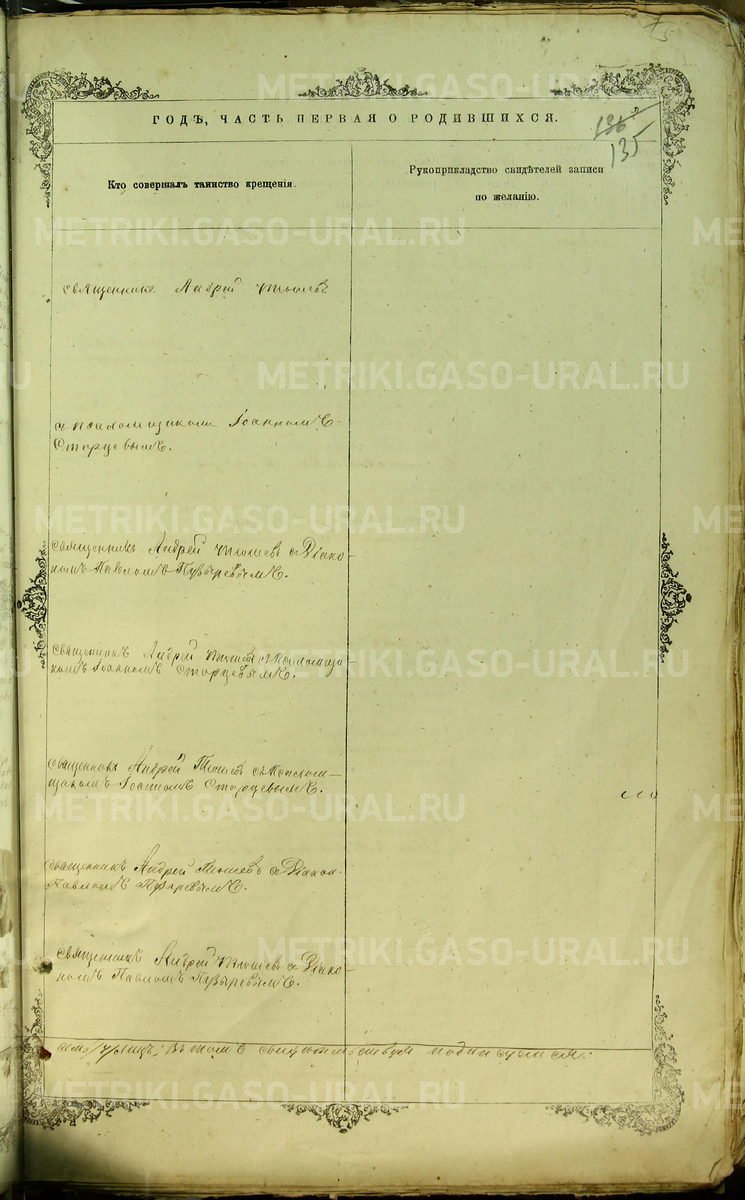 15
ГОДЪ, ЧАСТЬ ПЕРВАЯ О РОДИВШИХСЯ.
136
135
Кто совершалъ таинство крещенія.
Рукоприкладство свидѣтелей записи
по желанію.
Священникъ Андрей
съ псаломщикомъ Іоанномъ
Старцевымъ.
Священникъ Андрей съ Діако-
номъ Павломъ Пузыревымъ.
Священникъ Андрей съ Псаломщи-
комъ Іоанномъ Старцевымъ.
Священникъ Андрей съ Псалом-
щикомъ Іоанномъ Старцевымъ.
Священникъ Андрей съ Діакон.
Павломъ Пузыревымъ.
Священникъ Андрей съ Діако-
номъ Павломъ Пузыревымъ.
въ томъ подписуемся.
METRIKI.GASO-URAL.RU